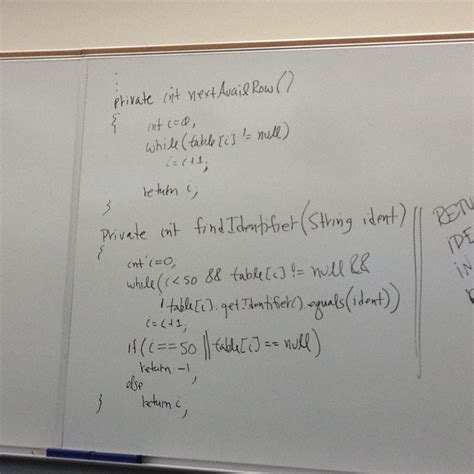 :
private int nextAvailRow()
{
int i=0,
while(table[i] != null)
i=i+1;
return i;
}
private int findIdentifier(String ident)
{
int i=0,
while(i<50 && table[i] != null &&
!table[i].getIdentifier().equals(ident))
i=i+1;
if(i==50 || table[i]==null)
return -1;
else
return i;
}
RETU
IDE
IN